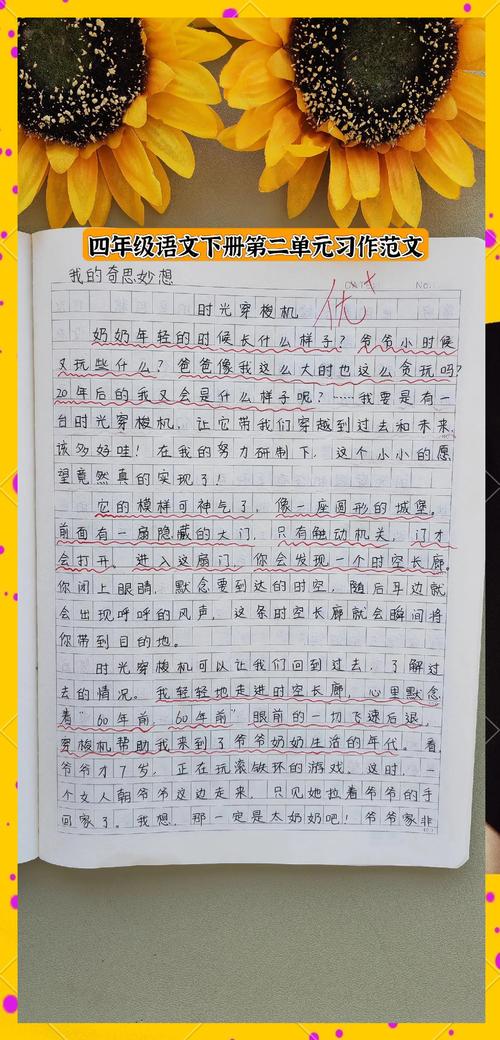 四年级语文下册第二单元习作范文
我的奇思妙想
DATE
NO.
优+
时光穿梭机
奶奶年轻的时候长什么样子？爷爷小时候
又玩些什么？爸爸像我这么大时也这么贪玩吗？
20年后的我又会是什么样子呢？……我要是有一
台时光穿梭机，让它带我们穿越到过去和未来，
该多好哇！在我的努力研制下，这个小小的愿
望竟然真的实现了！
它的模样可神气了，像一座圆形的城堡。
前面有一扇隐藏的大门，只有触动机关，门才
会打开。进入这扇门，你会发现一个时空长廊。
你闭上眼睛，默念要到达的时空，随后耳边就
会出现呼呼的风声，这条时空长廊就会瞬间将
你带到目的地。
时光穿梭机可以让我们回到过去，了解过
去的情况。我轻轻地走进时空长廊，心里默念
着“60年前，60年前”眼前的一切飞速后退，
穿梭机帮助我来到了爷爷奶奶生活的年代。看，
爷爷才7岁，正在玩滚铁环的游戏。这时，一
个女人朝爷爷这边走来，只见她拉着爷爷的手
回家了。我想，那一定是太奶奶吧！爷爷家非